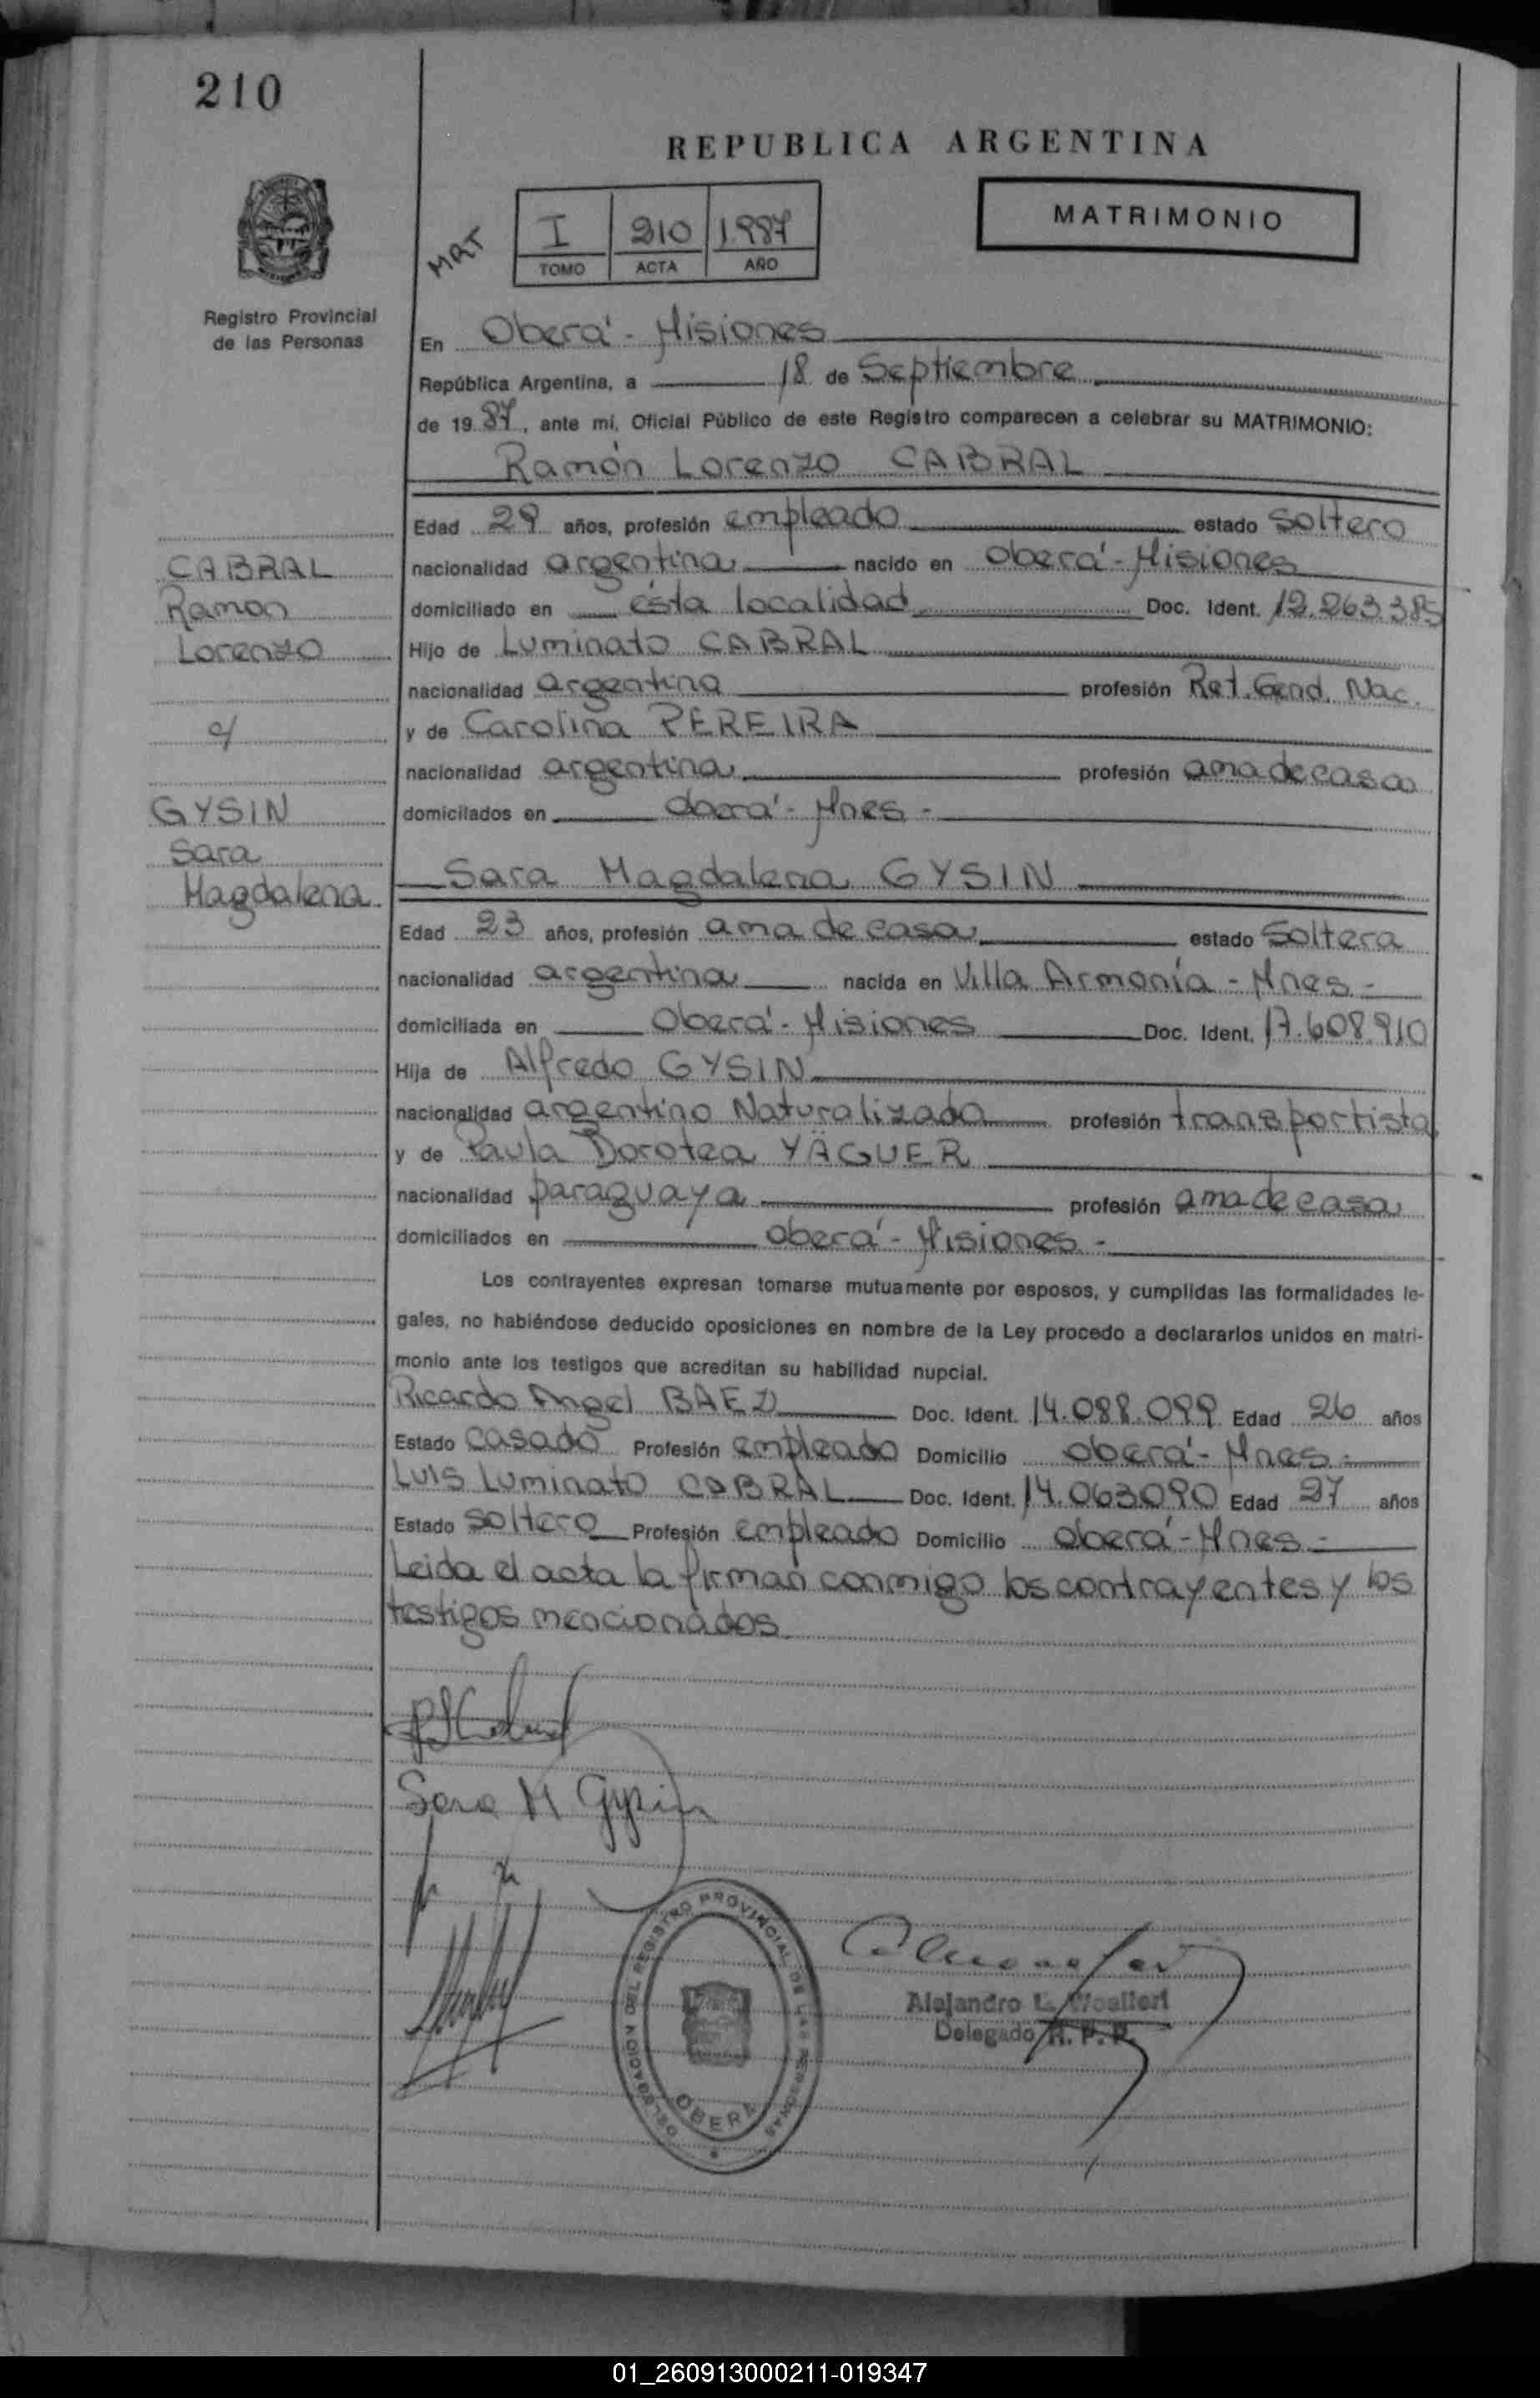 210
REPUBLICA ARGENTINA
MAT
I 210 1987
TOMO ACTA AÑO
MATRIMONIO
Registro Provincial
de las Personas
En Oberá - Misiones
República Argentina, a 18 de Septiembre
de 19 87, ante mí, Oficial Público de este Registro comparecen a celebrar su MATRIMONIO:
Ramón Lorenzo CABRAL
CABRAL
Ramon
Lorenzo
c/
GYSIN
Sara
Magdalena.
Edad 29 años, profesión empleado estado soltero
nacionalidad argentina nacido en Oberá - Misiones
domiciliado en ésta localidad Doc. Ident. 12.263.385
Hijo de Luminato CABRAL
nacionalidad argentina profesión Ret. Gend. Nac.
y de Carolina PEREIRA
nacionalidad argentina profesión ama de casa
domicilados en Oberá - Mnes -
Sara Magdalena GYSIN
Edad 23 años, profesión ama de casa estado Soltera
nacionalidad argentina nacida en Villa Armonía - Mnes -
domiciliada en Oberá - Misiones Doc. Ident. 17.608.910
Hija de Alfredo GYSIN
nacionalidad argentino Naturalizado profesión transportista
y de Paula Dorotea YÄGUER
nacionalidad paraguaya profesión ama de casa
domiciliados en Oberá - Misiones -
Los contrayentes expresan tomarse mutuamente por esposos, y cumplidas las formalidades le-
gales, no habiéndose deducido oposiciones en nombre de la Ley procedo a declararlos unidos en matri-
monio ante los testigos que acreditan su habilidad nupcial.
Ricardo Angel BAEZ Doc. Ident. 14.088.099 Edad 26 años
Estado casado Profesión empleado Domicilio Oberá - Mnes -
Luis Luminato CABRAL Doc. Ident. 14.063090 Edad 27 años
Estado soltero Profesión empleado Domicilio Oberá - Mnes -
Leida el acta la firman conmigo los contrayentes y los
testigos mencionados
Sara M Gysin
DELEGACION DEL REGISTRO PROVINCIAL DE LAS PERSONAS
OBERA
Alejandro L.
Delegado R. P. P.
01_260913000211-019347